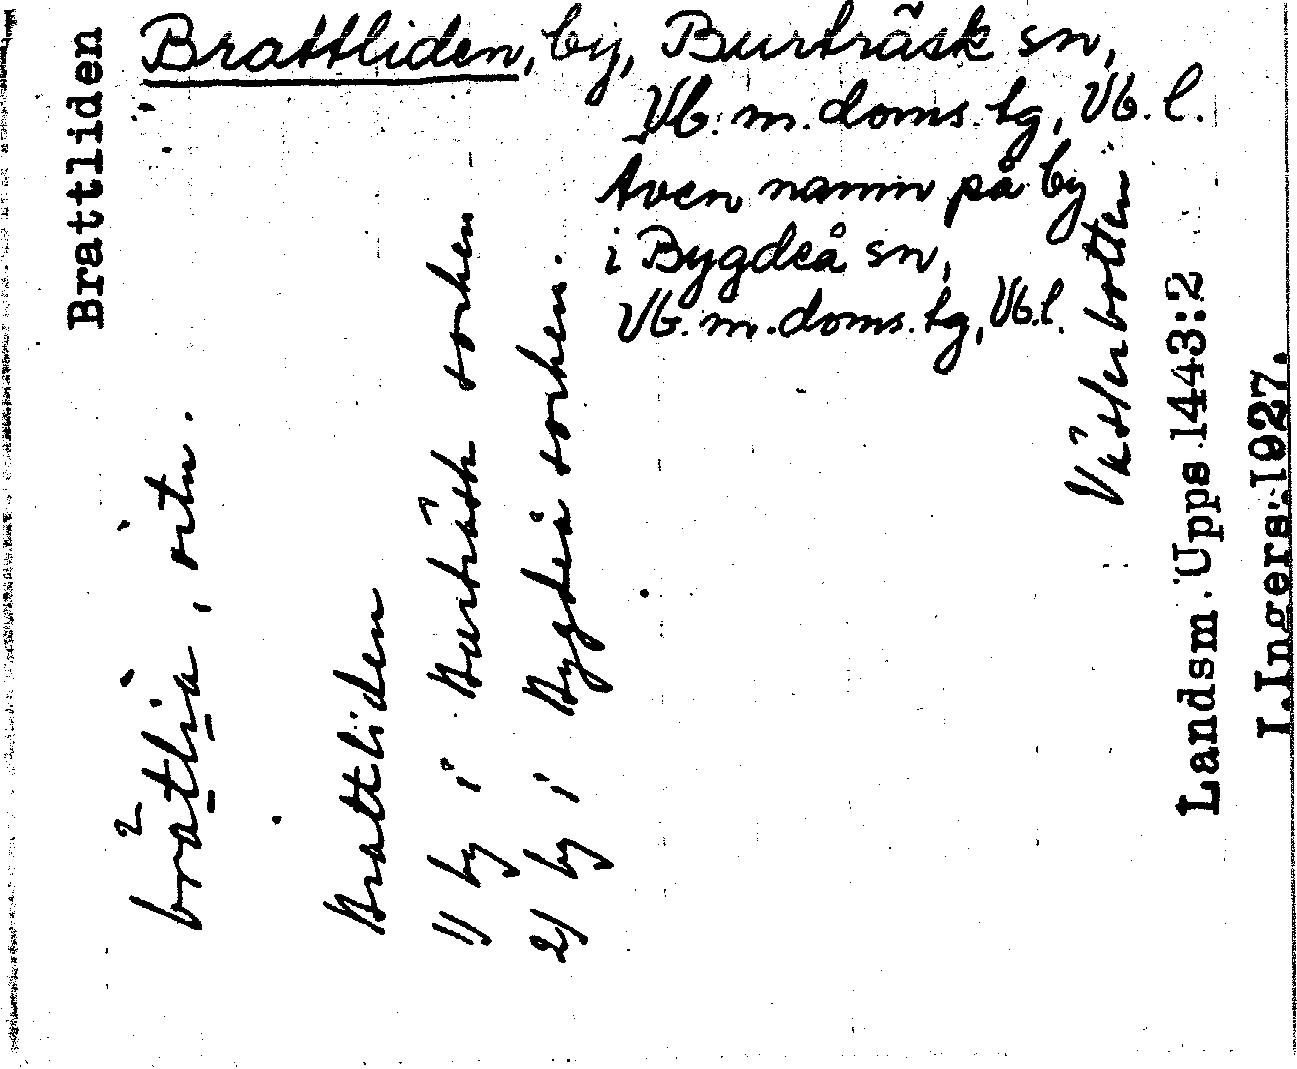 Brattliden, by, Burträsk sn,
Vb. m. doms. tg, Vb. l.
Även namn på by
i Bygdeå sn,
Vb. m. doms. tg, Vb. l.
Brattliden
bratlia, ortn.
Brattliden
1) by i Burträsk socken
2) by i Bygdeå socken.
Västerbotten
Landsm. Upps 1443:2
I. Ingers. 1927.